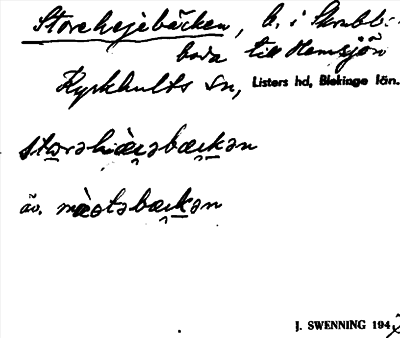 Storehejebäcken, b. i Skrabb-
boda till Hemsjön
Kyrkhults sn, Listers hd, Blekinge län.
storəhὰɛ̯əbæɛ̯kən
äv. mὰstəbæɛ̯kən
J. SWENNING 194